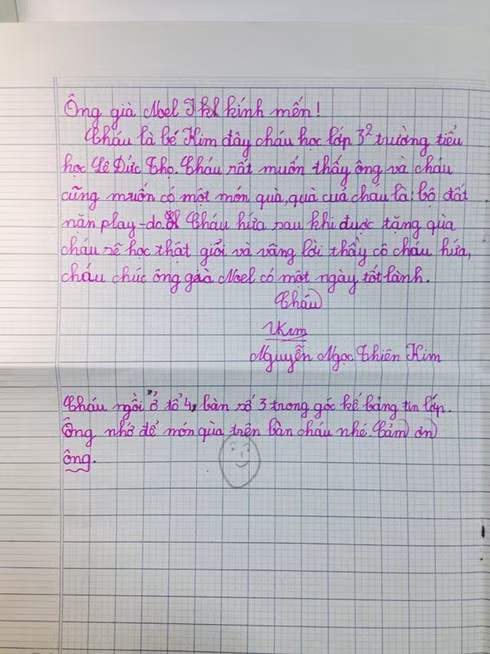 Ông già Noel kính mến!
Cháu là bé Kim đây cháu học lớp 3² trường tiểu
học Lê Đức Thọ. Cháu rất muốn thấy ông và cháu
cũng muốn có một món quà, quà của cháu là: bô đất
nặn play-do. Cháu hứa sau khi được tặng quà
cháu sẽ học thật giỏi và vâng lời thầy cô cháu hứa,
cháu chúc ông già Noel có một ngày tốt lành.
Cháu
Kim
Nguyễn Ngọc Thiên Kim
Cháu ngồi ở tổ 4, bàn số 3 trong góc kế bảng tin lớp.
Ông nhớ để món quà trên bàn cháu nhé. Cảm ơn
ông.